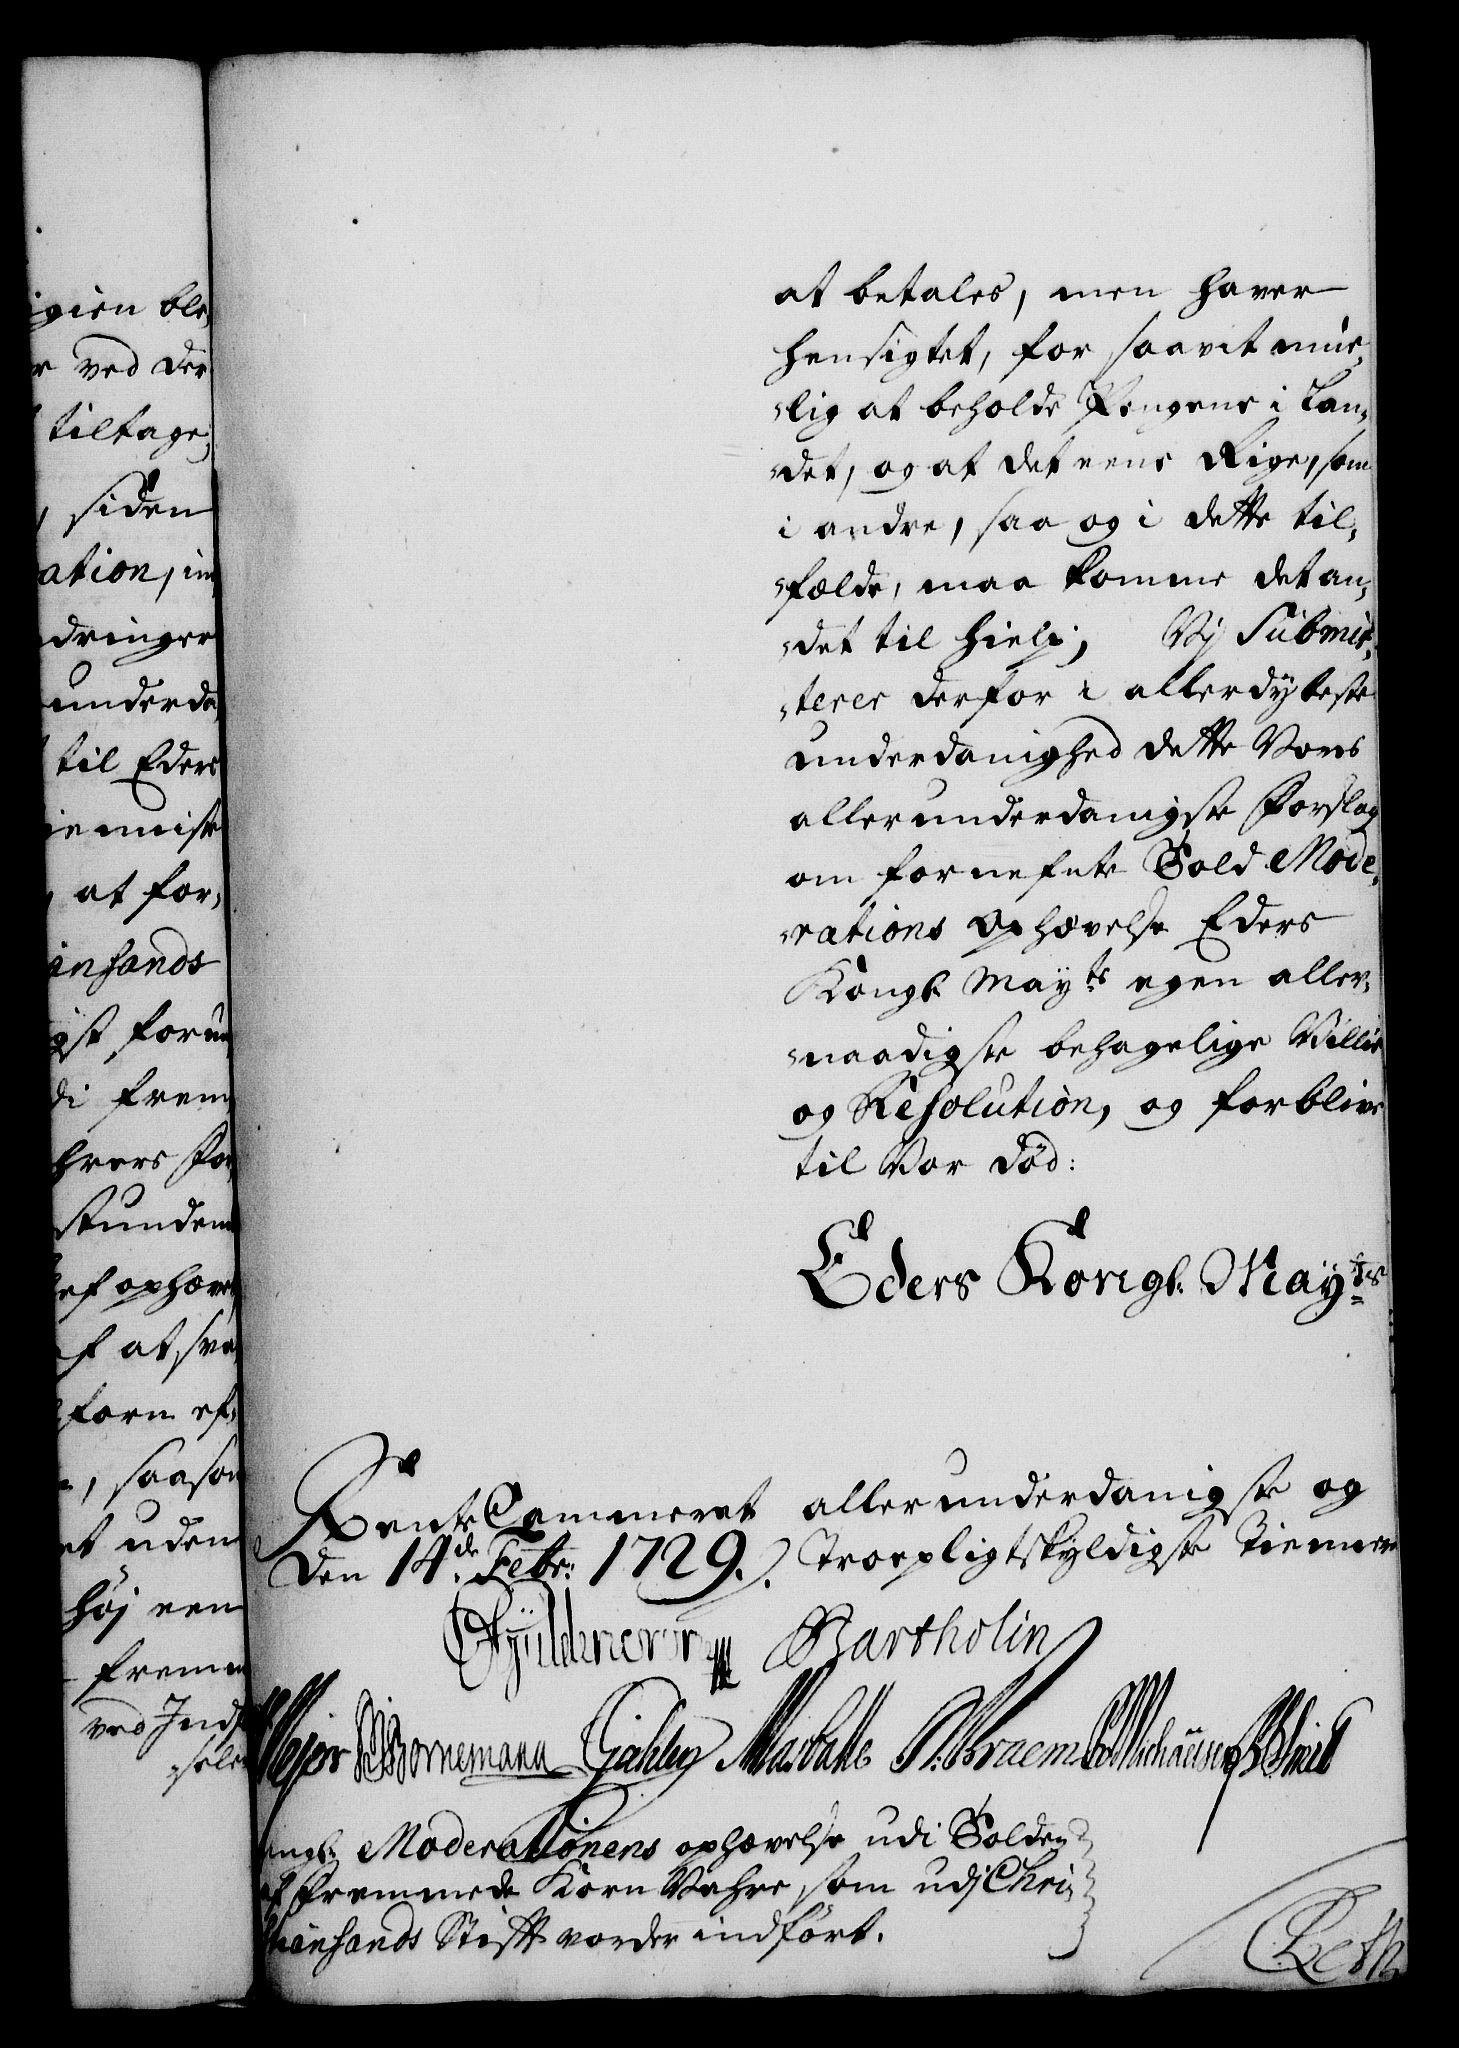 igien ble,
r ved der
tiltage,
, siden
ation, in,
dringer
underda,
til Eders
iennist
, at for,
ansands
igst for un,
di frem,
hrers For,
stundem
ef ophævet
f at sva,
forn ef,
, saasom
et uden
høj een
fremm
ved Indf,
sele
at betales, men haver
hensigtet, for saavit mue,
,,lig at beholde Pengene i Lan,
,,det, og at det eene Rige, som
i andre, saa og i dette til,
,,fælde, maa komme det an,
,,det til hielp; Vj Submit,
,,terer derfor i allerdybeste
underdanighed dette Vores
allerunderdanigste Forslag
om fornefnte Told Mode,
,,rations ophævelse Eders
Kongl. Mayts egen aller,
,,naadigste behagelige Villie
og Resolution, og forblive
til Vor død:
Eders Kongl. Mayts
RenteCammeret allerunderdanigste og
den 14de Febr: 1729. Troepligtskyldigste Tienere
Gyldencron Bartholin
Wejer Bornemann Gähler
ngl. Moderationens ophævelse udi Tolden
af fremmede Korn Vahre, som udj Chri,
tiansands Stift vorder indført.